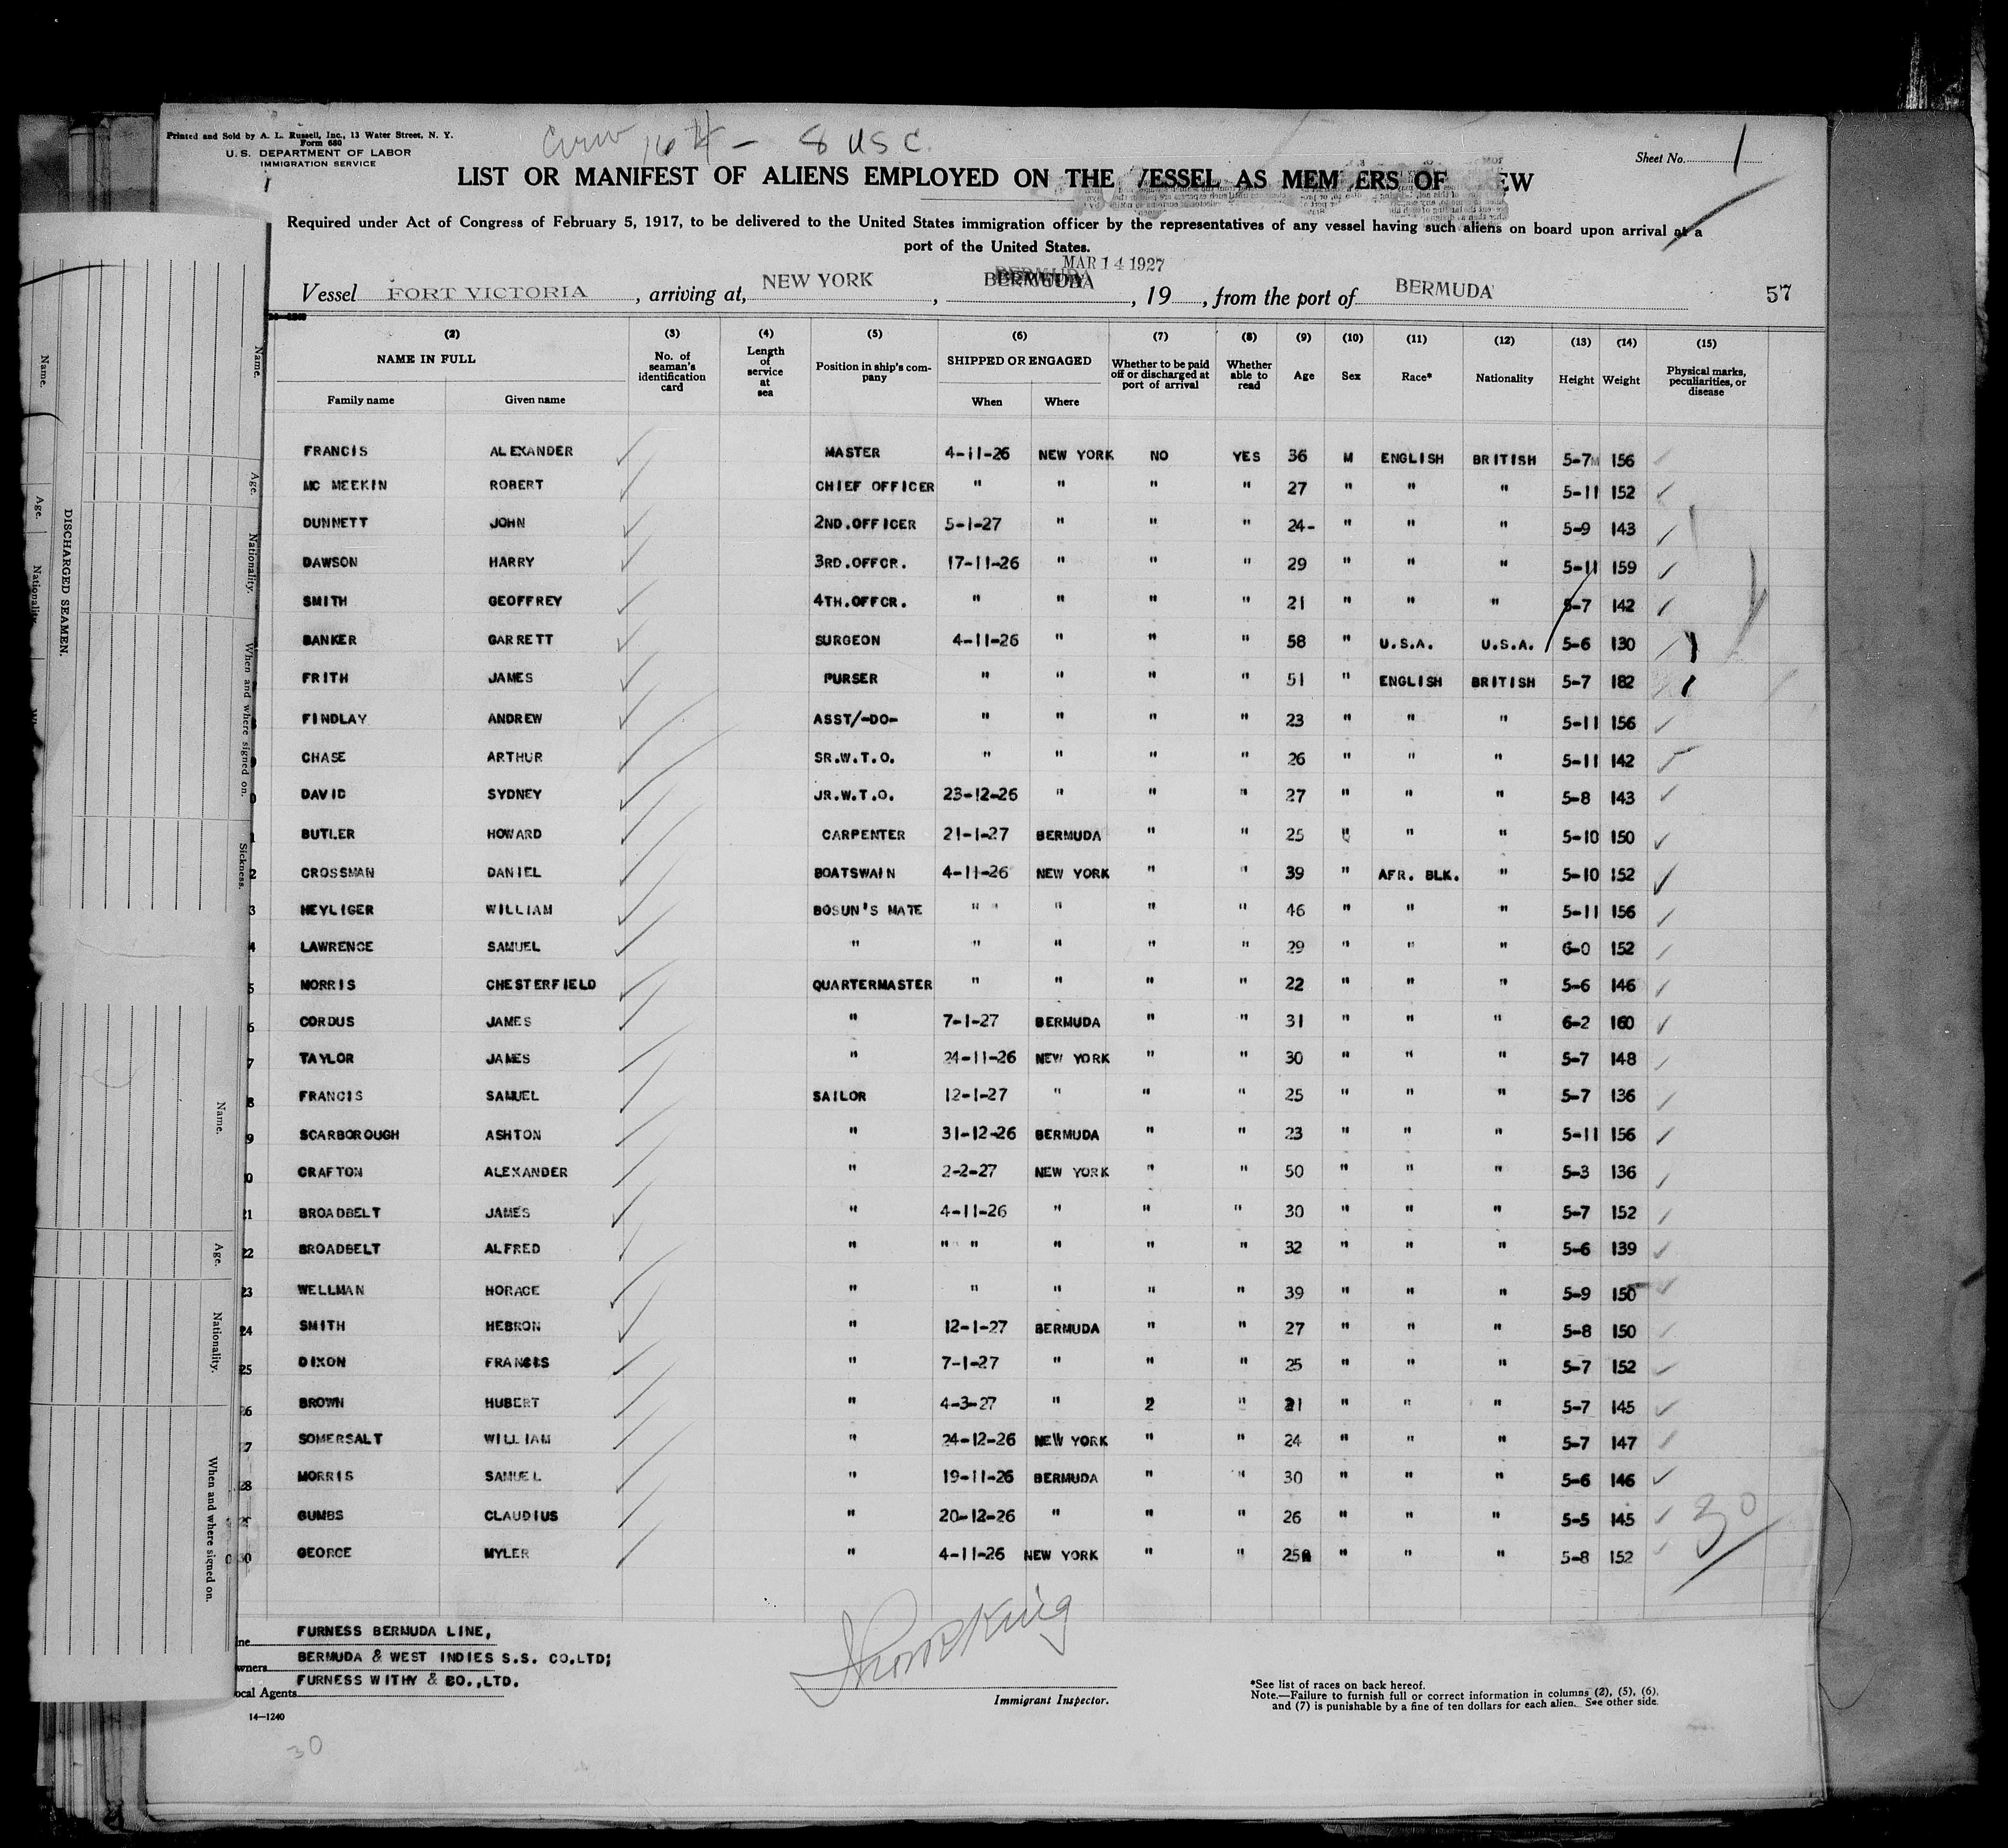 Printed and Sold by A. L. Russell, Inc., 13 Water Street, N. Y.
Form 680
U. S. DEPARTMENT OF LABOR
IMMIGRATION SERVICE
Crew - 8 USC.
Sheet No. 1
LIST OR MANIFEST OF ALIENS EMPLOYED ON THE VESSEL AS MEM ERS OF EW
Required under Act of Congress of February 5, 1917, to be delivered to the United States immigration officer by the representatives of any vessel having such aliens on board upon arrival at a
port of the United States.
MAR 14 1927
Vessel FORT VICTORIA, arriving at, NEW YORK, BERMUDA, 19 , from the port of BERMUDA 57
(2) (3) (4) (5) (6) (7) (8) (9) (10) (11) (12) (13) (14) (15)
NAME IN FULL No. of seaman's identification card Length of service at sea Position in ship's company SHIPPED OR ENGAGED Whether to be paid off or discharged at port of arrival Whether able to read Age Sex Race* Nationality Height Weight Physical marks, peculiarities, or disease
Family name Given name When Where
FRANCIS ALEXANDER MASTER 4-11-26 NEW YORK NO YES 36 M ENGLISH BRITISH 5-7 156
MC MEEKIN ROBERT CHIEF OFFICER " " " " 27 " " " 5-11 152
DUNNETT JOHN 2ND.OFFICER 5-1-27 " " " 24- " " " 5-9 143
DAWSON HARRY 3RD.OFFCR. 17-11-26 " " " 29 " " " 5-11 159
SMITH GEOFFREY 4TH.OFFCR. " " " " 21 " " " 5-7 142
BANKER GARRETT SURGEON 4-11-26 " " " 58 " U.S.A. U.S.A. 5-6 130
FRITH JAMES PURSER " " " " 51 " ENGLISH BRITISH 5-7 182
FINDLAY ANDREW ASST/-DO- " " " " 23 " " " 5-11 156
CHASE ARTHUR SR.W.T.O. " " " " 26 " " " 5-11 142
DAVID SYDNEY JR.W.T.O. 23-12-26 " " " 27 " " " 5-8 143
1 BUTLER HOWARD CARPENTER 21-1-27 BERMUDA " " 25 " " " 5-10 150
2 CROSSMAN DANIEL BOATSWAIN 4-11-26 NEW YORK " " 39 " AFR. BLK. " 5-10 152
3 HEYLIGER WILLIAM BOSUN'S MATE " " " " " 46 " " " 5-11 156
4 LAWRENCE SAMUEL " " " " " 29 " " " 6-0 152
5 MORRIS CHESTERFIELD QUARTERMASTER " " " " 22 " " " 5-6 146
6 CORDUS JAMES " 7-1-27 BERMUDA " " 31 " " " 6-2 160
7 TAYLOR JAMES " 24-11-26 NEW YORK " " 30 " " " 5-7 148
8 FRANCIS SAMUEL SAILOR 12-1-27 " " " 25 " " " 5-7 136
9 SCARBOROUGH ASHTON " 31-12-26 BERMUDA " " 23 " " " 5-11 156
0 CRAFTON ALEXANDER " 2-2-27 NEW YORK " " 50 " " " 5-3 136
21 BROADBELT JAMES " 4-11-26 " " " 30 " " " 5-7 152
22 BROADBELT ALFRED " " " " " " 32 " " " 5-6 139
23 WELLMAN HORACE " " " " " 39 " " " 5-9 150
24 SMITH HEBRON " 12-1-27 BERMUDA " " 27 " " " 5-8 150
25 DIXON FRANCIS " 7-1-27 " " " 25 " " " 5-7 152
26 BROWN HUBERT " 4-3-27 " 2 " 21 " " " 5-7 145
27 SOMERSALT WILLIAM " 24-12-26 NEW YORK " " 24 " " " 5-7 147
28 MORRIS SAMUEL " 19-11-26 BERMUDA " " 30 " " " 5-6 146
GUMBS CLAUDIUS " 20-12-26 " " " 26 " " " 5-5 145
30 GEORGE MYLER " 4-11-26 NEW YORK " " 25 " " " 5-8 152
30
ine FURNESS BERMUDA LINE,
wners BERMUDA & WEST INDIES S.S. CO.LTD;
ocal Agents FURNESS WITHY & CO.,LTD.
Immigrant Inspector.
*See list of races on back hereof.
Note.—Failure to furnish full or correct information in columns (2), (5), (6),
and (7) is punishable by a fine of ten dollars for each alien. See other side.
14—1240
30
DISCHARGED SEAMEN.
Name.
Age.
Nationality.
When and where signed on.
Sickness.
Name.
Age.
Nationality.
When and where signed on.
Name.
Age.